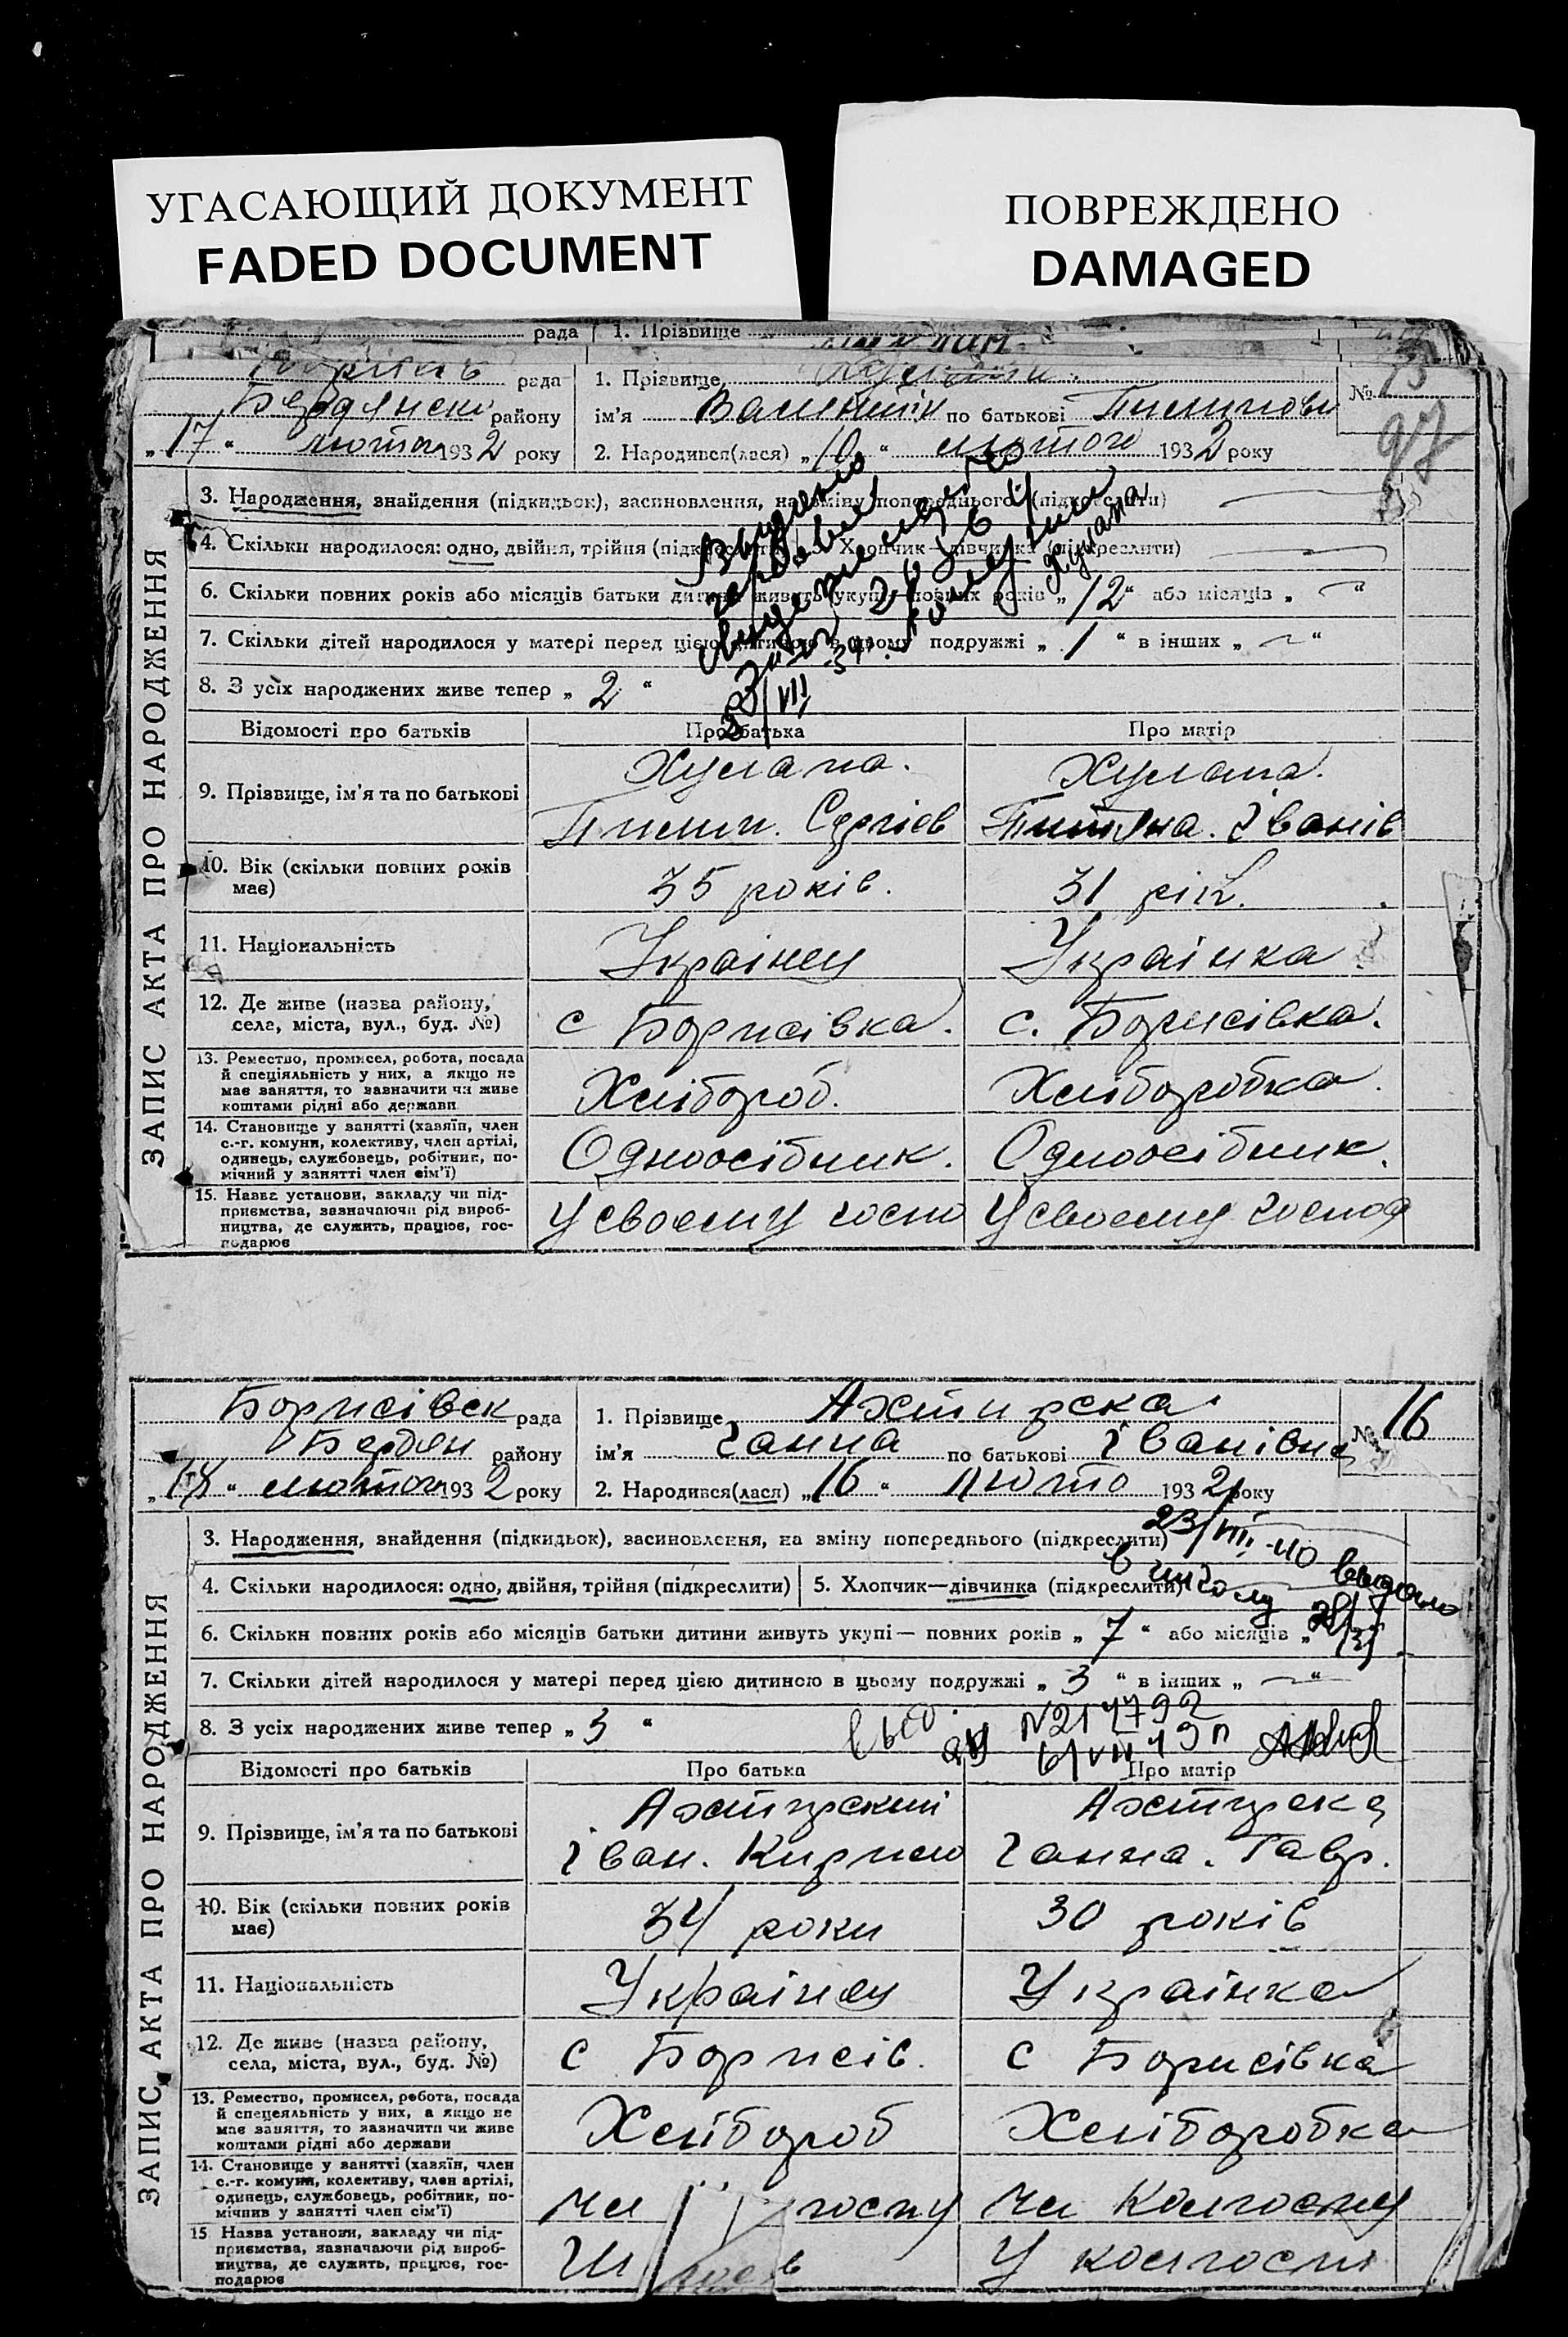 УГАСАЮЩИЙ ДОКУМЕНТ
FADED DOCUMENT
ПОВРЕЖДЕНО
DAMAGED
рада 1. Прізвище
рада 1. Прізвище
Бердянськ району ім'я Валентін по батькові Пилипови №
„17“ лютого 1932 року 2. Народився(лася) „10“ лютого 1932 року
97
ЗАПИС АКТА ПРО НАРОДЖЕННЯ
3. Народження, знайдення (підкидьок), засиновлення, на зміну попереднього (підкреслити)
4. Скільки народилося: одно, двійня, трійня (підкреслити) 5. Хлопчик—дівчинка (підкреслити)
6. Скільки повних років або місяців батьки дитини живуть укупі—повних років „12“ або місяців „ “
7. Скільки дітей народилося у матері перед цією дитиною в цьому подружжі „1“ в інших „ “
8. З усіх народжених живе тепер „2“
Відомості про батьків Про батька Про матір
9. Прізвище, ім'я та по батькові
Хулапа. Хулапа.
Пилип. Сергієв Титяна. Іванів
10. Вік (скільки повних років має) 35 років. 31 рік.
11. Національність Українец Українка
12. Де живе (назва району, села, міста, вул., буд. №) с Борисівка. с. Борисівка.
13. Ремество, промисел, робота, посада
й спеціяльність у них, а якщо не
має заняття, то зазначити чи живе
коштами рідні або держави
Хлібороб. Хлiборобка.
14. Становище у занятті (хазяїн, член
с.-г. комуни, колективу, член артілі,
одинець, службовець, робітник, по-
мічний у занятті член сім'ї)
Одноосібник. Одноосібник.
15. Назва установи, закладу чи під-
приємства, зазначаючи рід вироб-
ництва, де служить, працює, гос-
подарює
У своєму госпо У своєму господ
Борисівск рада 1. Прізвище Ахтирска №16
Бердян району ім'я Ганна по батькові Іванівна
„18“ лютого 1932 року 2. Народився(лася) „16“ люто 1932 року
ЗАПИС АКТА ПРО НАРОДЖЕННЯ
3. Народження, знайдення (підкидьок), засиновлення, на зміну попереднього (підкреслити)
23/VIII-40 видано
в школу
4. Скільки народилося: одно, двійня, трійня (підкреслити) 5. Хлопчик—дівчинка (підкреслити)
6. Скільки повних років або місяців батьки дитини живуть укупі—повних років „7“ або місяців „
7. Скільки дітей народилося у матері перед цією дитиною в цьому подружжі „3“ в інших „ “
8. З усіх народжених живе тепер „3“
Відомості про батьків Про батька Про матір
9. Прізвище, ім'я та по батькові
Ахтирский Ахтирска
Іван. Кирило Ганна. Гавр.
10. Вік (скільки повних років має) 34 роки 30 років
11. Національність Українец Українка
12. Де живе (назва району, села, міста, вул., буд. №) с Борисів. с Борисівка
13. Ремество, промисел, робота, посада
й спецеяльність у них, а якщо не
має заняття, то зазначити чи живе
коштами рідні або держави
Хлібороб Хліборобка
14. Становище у занятті (хазяїн, член
с.-г. комуни, колективу, член артілі,
одинець, службовець, робітник, по-
мічния у занятті член сім'ї)
Чл госпу Чл колгоспу
15 Назва установи, закладу чи під-
приємства, зазначаючи рід вироб-
ництва, де служить, працює, гос-
подарює
У колгоспі